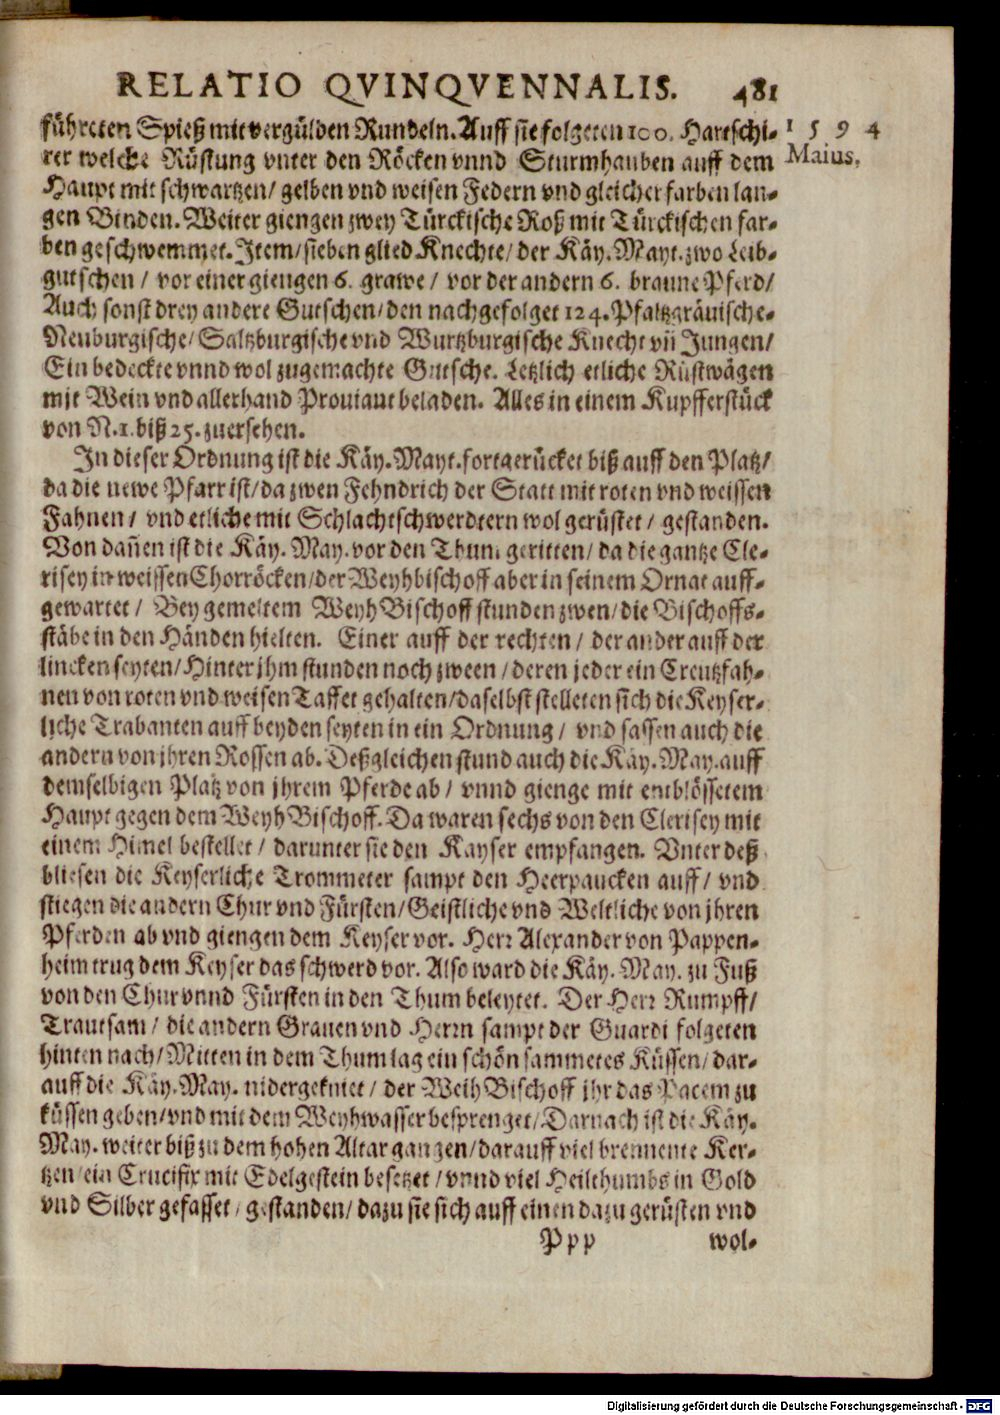 RELATIO QVINQVENNALIS. 481
führeten Spieß mit vergülden Rundeln. Auff sie folgeten 100. Hartschi-
1594
Maius.
rer welche Rüstung vnter den Röcken vnnd Sturmhauben auff dem
Haupt mit schwartzen/ gelben vnd weisen Federn vnd gleicher farben lan-
gen Binden. Weiter giengen zwey Türckische Roß mit Türckischen far-
ben geschwemmet. Item/ sieben glied Knechte/ der Käy. Mayt. zwo Leib-
gutschen / vor einer giengen 6. grawe / vor der andern 6. braune Pferd/
Auch sonst drey andere Gutschen/ den nachgefolget 124. Pfaltzgräuische-
Neuburgische/ Saltzburgische vnd Wurtzburgische Knecht vñ Jungen/
Ein bedeckte vnnd wol zugemachte Gutsche. Letzlich etliche Rüstwägen
mit Wein vnd allerhand Prouiant beladen. Alles in einem Kupfferstück
von N. 1. biß 25. zuersehen.
In dieser Ordnung ist die Käy. Mayt. fortgerücket biß auff den Platz/
da die newe Pfarr ist/ da zwen Fehndrich der Statt mit roten vnd weissen
Fahnen / vnd etliche mit Schlachtschwerdtern wol gerüstet / gestanden.
Von dañen ist die Käy. May. vor den Thum geritten/ da die gantze Cle-
risey in weissen Chorröcken/ der Weyhbischoff aber in seinem Ornat auff-
gewartet / Bey gemeltem Weyh Bischoff stunden zwen/ die Bischoffs-
stäbe in den Händen hielten. Einer auff der rechten / der ander auff der
lincken seyten/ Hinter jhm stunden noch zween / deren jeder ein Creutzfah-
nen von roten vnd weisen Taffet gehalten/ daselbst stelleten sich die Keyser-
liche Trabanten auff beyden seyten in ein Ordnung / vnd sassen auch die
andern von jhren Rossen ab. Deßgleichen stund auch die Käy. May. auff
demselbigen Platz von jhrem Pferde ab / vnnd gienge mit entblössetem
Haupt gegen dem Weyh Bischoff. Da waren sechs von den Clerisey mit
einem Himel bestellet / darunter sie den Kayser empfangen. Vnter deß
bliesen die Keyserliche Trommeter sampt den Heerpaucken auff / vnd
stiegen die andern Chur vnd Fürsten/ Geistliche vnd Weltliche von jhren
Pferden ab vnd giengen dem Keyser vor. Herr Alexander von Pappen-
heim trug dem Keyser das schwerd vor. Also ward die Käy. May. zu Fuß
von den Chur vnnd Fürsten in den Thum beleytet. Der Herr Rumpff/
Trautsam / die andern Grauen vnd Herrn sampt der Guardi folgeten
hinten nach/ Mitten in dem Thum lag ein schön sammetes Küssen/ dar-
auff die Käy. May. nidergekniet / der Weih Bischoff jhr das Pacem zu
küssen geben/ vnd mit dem Weyhwasser besprenget/ Darnach ist die Käy.
May. weiter biß zu dem hohen Altar gangen/ darauff viel brennente Ker-
tzen/ ein Crucifix mit Edelgestein besetzet / vnnd viel Heilthumbs in Gold
vnd Silber gefasset / gestanden/ dazu sie sich auff einen dazu gerüsten vnd
Ppp wol-
Digitalisierung gefördert durch die Deutsche Forschungsgemeinschaft - DFG